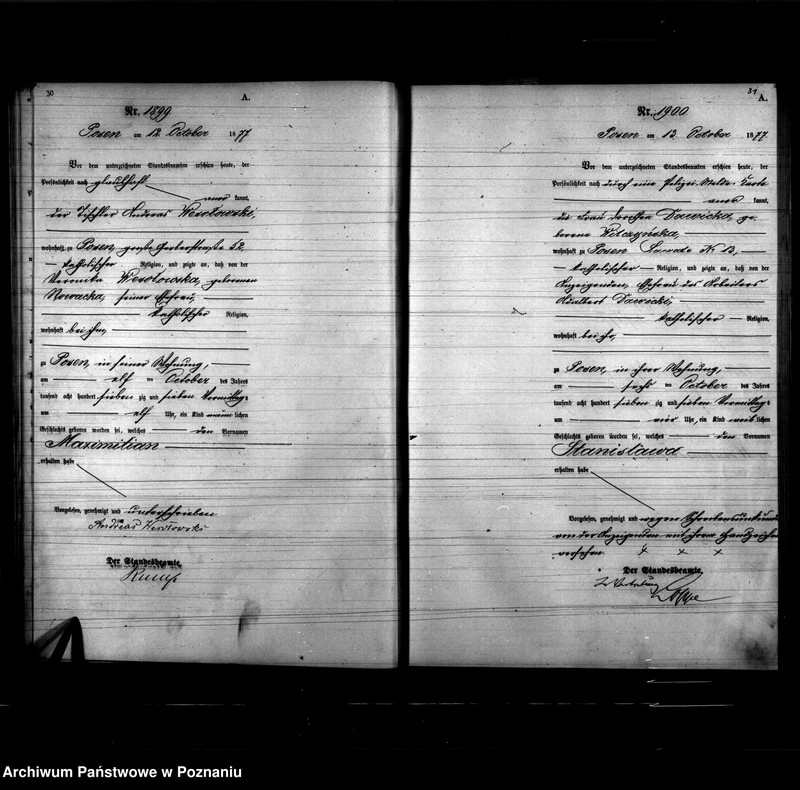 30
A.
Nr. 1899
Posen am 12. October 1877
Vor dem unterzeichneten Standesbeamten erschien heute, der
Persönlichkeit nach glaubhaft
aner kannt,
der Tischler Andreas Wesołowski,
wohnhaft zu Posen, große Gerberstraße 52.
katholischer Religion, und zeigte an, daß von der
Veronika Wesołowska, geborenen
Nowacka, seiner Ehefrau,
katholischer Religion,
wohnhaft bei ihm,
zu Posen, in seiner Wohnung,
am elf ten October des Jahres
tausend acht hundert sieben zig und sieben Vormittags
um elf Uhr, ein Kind männ lichen
Geschlechts geboren worden sei, welches den Vornamen
Maximilian
erhalten habe
Vorgelesen, genehmigt und unterschrieben
Andreas Wesołowski
Der Standesbeamte.
31
A.
Nr. 1900
Posen am 13. October 1877
Vor dem unterzeichneten Standesbeamten erschien heute, der
Persönlichkeit nach durch eine Polizei-Melde-Karte
aner kannt,
die Frau Dorothea Dawicka, ge-
borene Witczyńska,
wohnhaft zu Posen No 13,
katholischer Religion, und zeigte an, daß von der
Anzeigenden, Ehefrau des Arbeiters
Adalbert Dawicki,
katholischer Religion,
wohnhaft bei ihr,
zu Posen, in ihrer Wohnung,
am sechs ten October des Jahres
tausend acht hundert sieben zig und sieben Vormittags
um vier Uhr, ein Kind weib lichen
Geschlechts geboren worden sei, welches den Vornamen
Stanisława
erhalten habe
Vorgelesen, genehmigt und wegen Schreibensunkunde
von der Anzeigenden mit ihrem Handzeichen
versehen. x x x
Der Standesbeamte.
In Vertretung
Archiwum Państwowe w Poznaniu